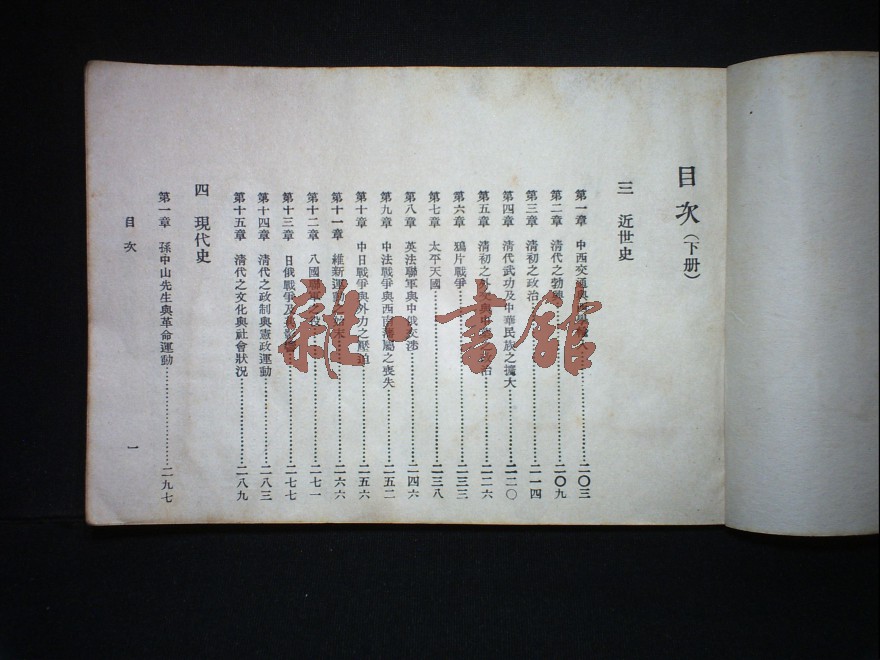 目次(下册)
三 近世史
第一章 中西交通與西學⋯⋯二〇三
第二章 清代之勃興⋯⋯二〇九
第三章 清初之政治⋯⋯二一四
第四章 清代武功及中華民族之擴大⋯⋯二二〇
第五章 清初之外交與中⋯⋯治⋯⋯二二六
第六章 鴉片戰爭⋯⋯二三三
第七章 太平天國⋯⋯二三八
第八章 英法聯軍與中俄交涉⋯⋯二四六
第九章 中法戰爭與西南藩屬之喪失⋯⋯二五二
第十章 中日戰爭與外力之壓迫⋯⋯二五六
第十一章 維新運動之始末⋯⋯二六六
第十二章 八國聯軍之役⋯⋯二七一
第十三章 日俄戰爭及⋯⋯二七七
第十四章 清代之政制與憲政運動⋯⋯二八三
第十五章 清代之文化與社會狀況⋯⋯二八九
四 現代史
第一章 孫中山先生與革命運動⋯⋯二九七
目次 一
雜·書館